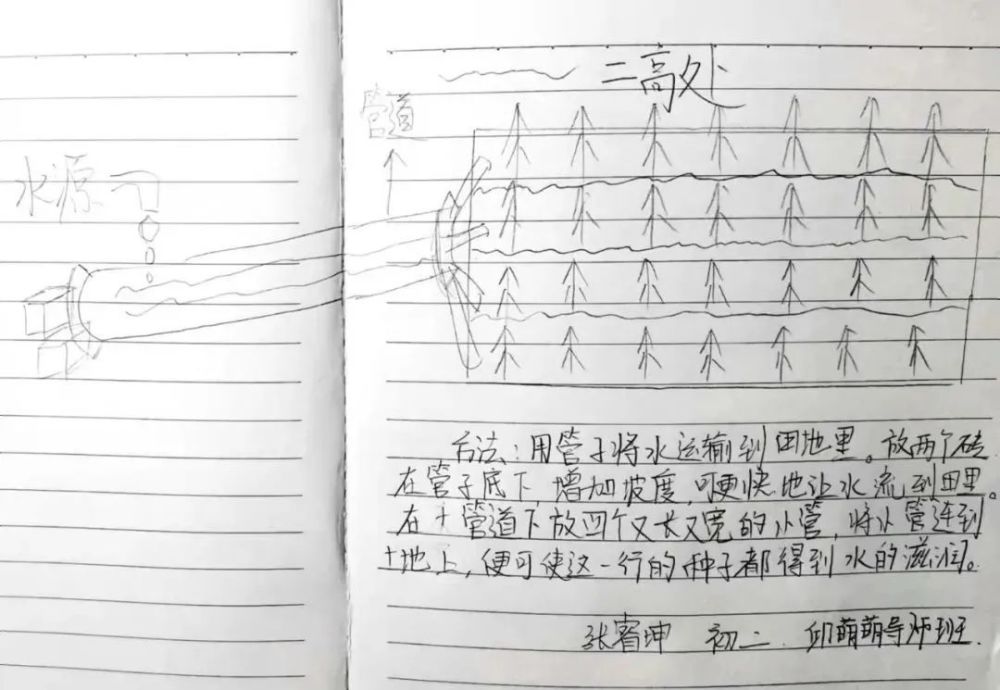 二高处
管道
水源
方法:用管子将水运输到田地里。放两个砖
在管子底下,增加坡度,可更快地让水流到田里。
在十管道下放四个又长又宽的小管,将小管连到
十地上,便可使这一行的种子都得到水的滋润。
张睿坤 初二 邱萌萌导师班